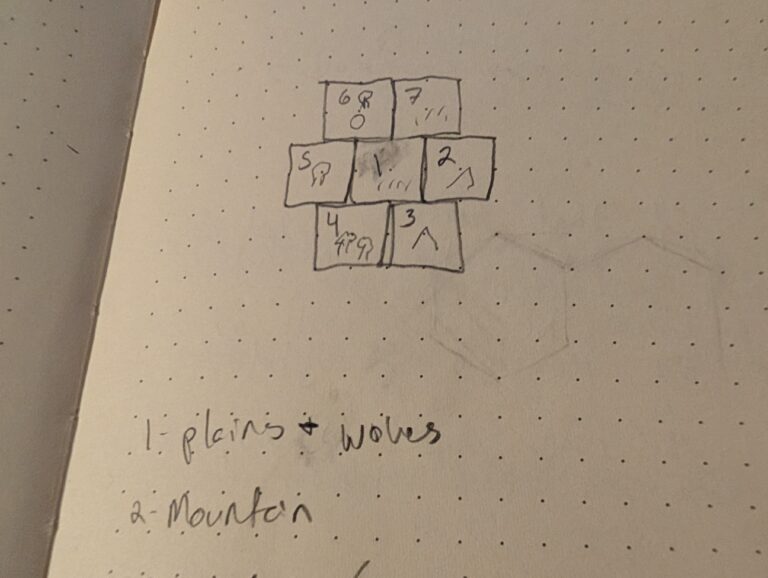 6 7
5 1 2
4 3
1- plains + wolves
2- Mountain